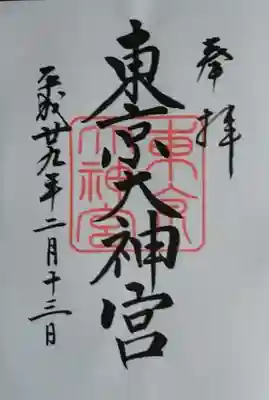 奉拝
東京大神宮
東京大神宮
平成廿九年二月十三日